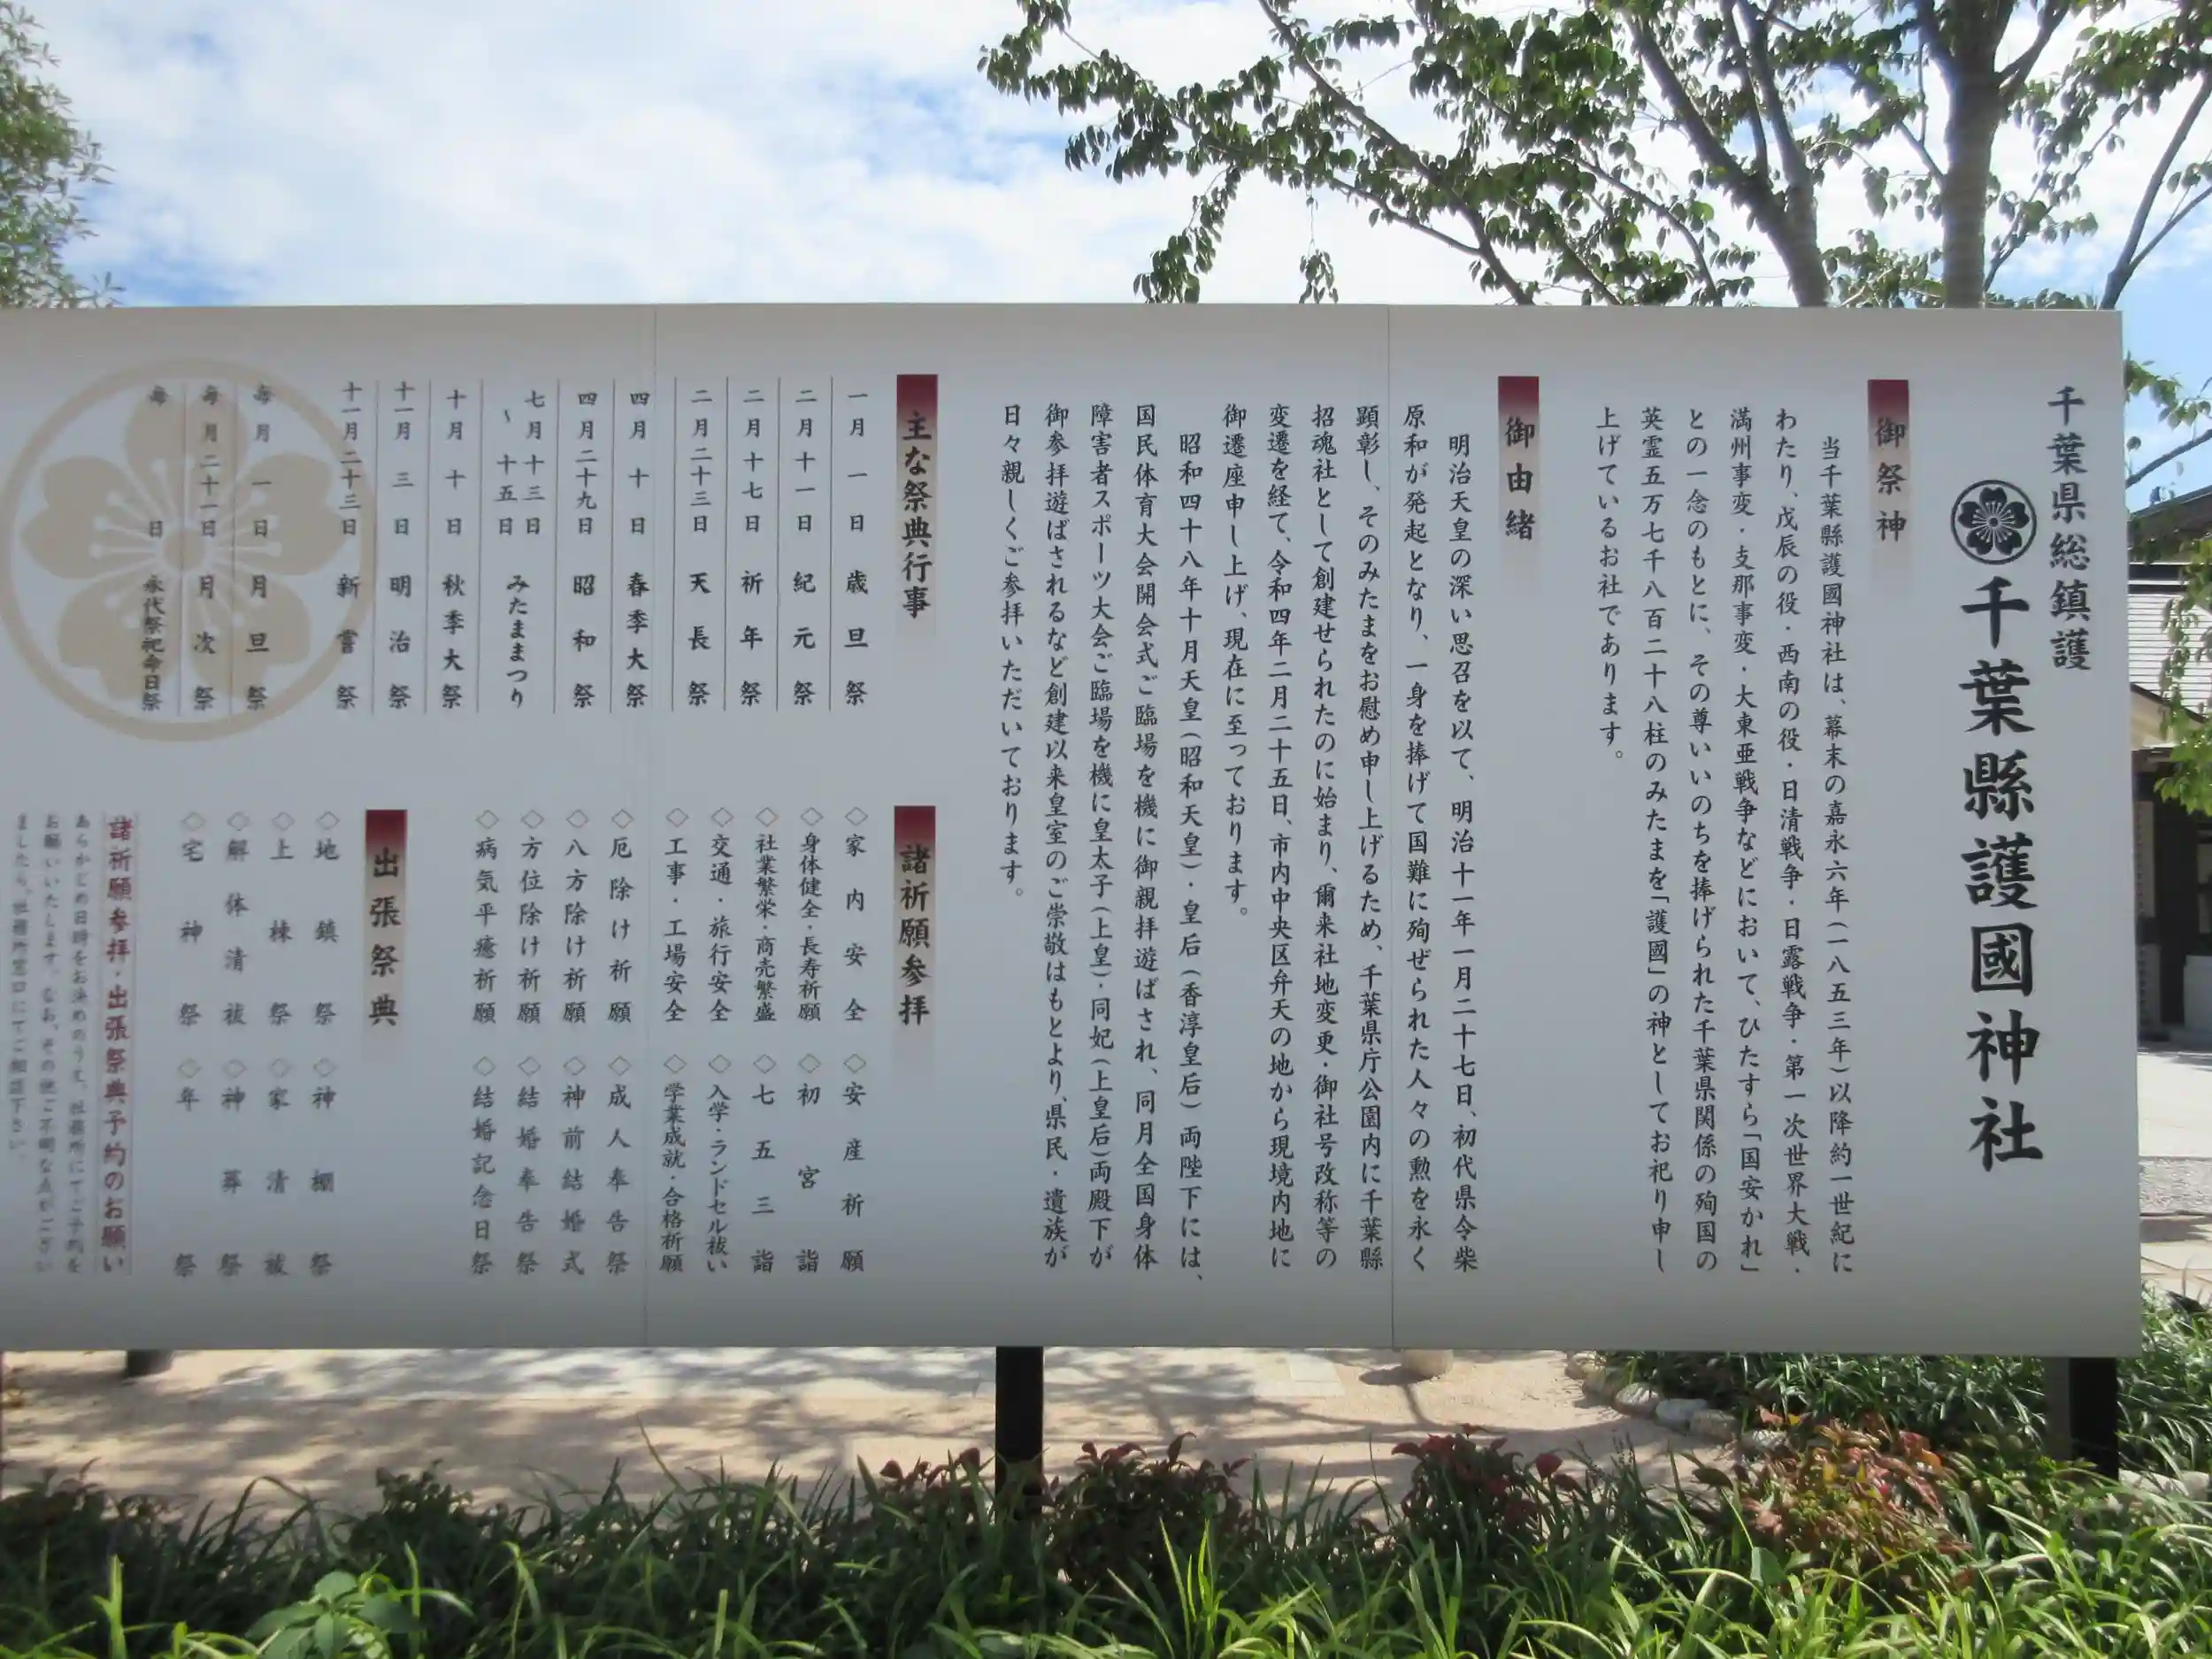 千葉県総鎮護
千葉縣護國神社
御祭神
当千葉縣護國神社は、幕末の嘉永六年(一八五三年)以降約一世紀に
わたり、戊辰の役・西南の役・日清戦争・日露戦争・第一次世界大戦・
満州事変・支那事変・大東亜戦争などにおいて、ひたすら「国安かれ」
との一念のもとに、その尊いいのちを捧げられた千葉県関係の殉国の
英霊五万七千八百二十八柱のみたまを「護國」の神としてお祀り申し
上げているお社であります。
御由緒
明治天皇の深い思召を以て、明治十一年一月二十七日、初代県令柴
原和が発起となり、一身を捧げて国難に殉ぜられた人々の勲を永く
顕彰し、そのみたまをお慰め申し上げるため、千葉県庁公園内に千葉縣
招魂社として創建せられたのに始まり、爾来社地変更・御社号改称等の
変遷を経て、令和四年二月二十五日、市内中央区弁天の地から現境内地に
御遷座申し上げ、現在に至っております。
昭和四十八年十月天皇(昭和天皇)・皇后(香淳皇后)両陛下には、
国民体育大会開会式ご臨場を機に御親拝遊ばされ、同月全国身体
障害者スポーツ大会ご臨場を機に皇太子(上皇)・同妃(上皇后)両殿下が
御参拝遊ばされるなど創建以来皇室のご崇敬はもとより、県民・遺族が
日々親しくご参拝いただいております。
主な祭典行事
一月一日 歳旦祭
二月十一日 紀元祭
二月十七日 祈年祭
二月二十三日 天長祭
四月十日 春季大祭
四月二十九日 昭和祭
七月十三日
~十五日 みたままつり
十月十日 秋季大祭
十一月三日 明治祭
十一月二十三日 新嘗祭
毎月一日 月旦祭
毎月二十一日 月次祭
毎日 永代祭祀命日祭
諸祈願参拝
◇家内安全 ◇安産祈願
◇身体健全・長寿祈願 ◇初宮詣
◇社業繁栄・商売繁盛 ◇七五三詣
◇交通・旅行安全 ◇入学・ランドセル祓い
◇工事・工場安全 ◇学業成就・合格祈願
◇厄除け祈願 ◇成人奉告祭
◇八方除け祈願 ◇神前結婚式
◇方位除け祈願 ◇結婚奉告祭
◇病気平癒祈願 ◇結婚記念日祭
出張祭典
◇地鎮祭 ◇神棚祭
◇上棟祭 ◇家清祓
◇解体清祓 ◇神葬祭
◇宅神祭 ◇年祭
諸祈願参拝・出張祭典予約のお願い
あらかじめ日時をお決めのうえ、社務所にてご予約を
お願いいたします。なお、その他ご不明な点がござい
ましたら、社務所窓口にてご相談下さい。